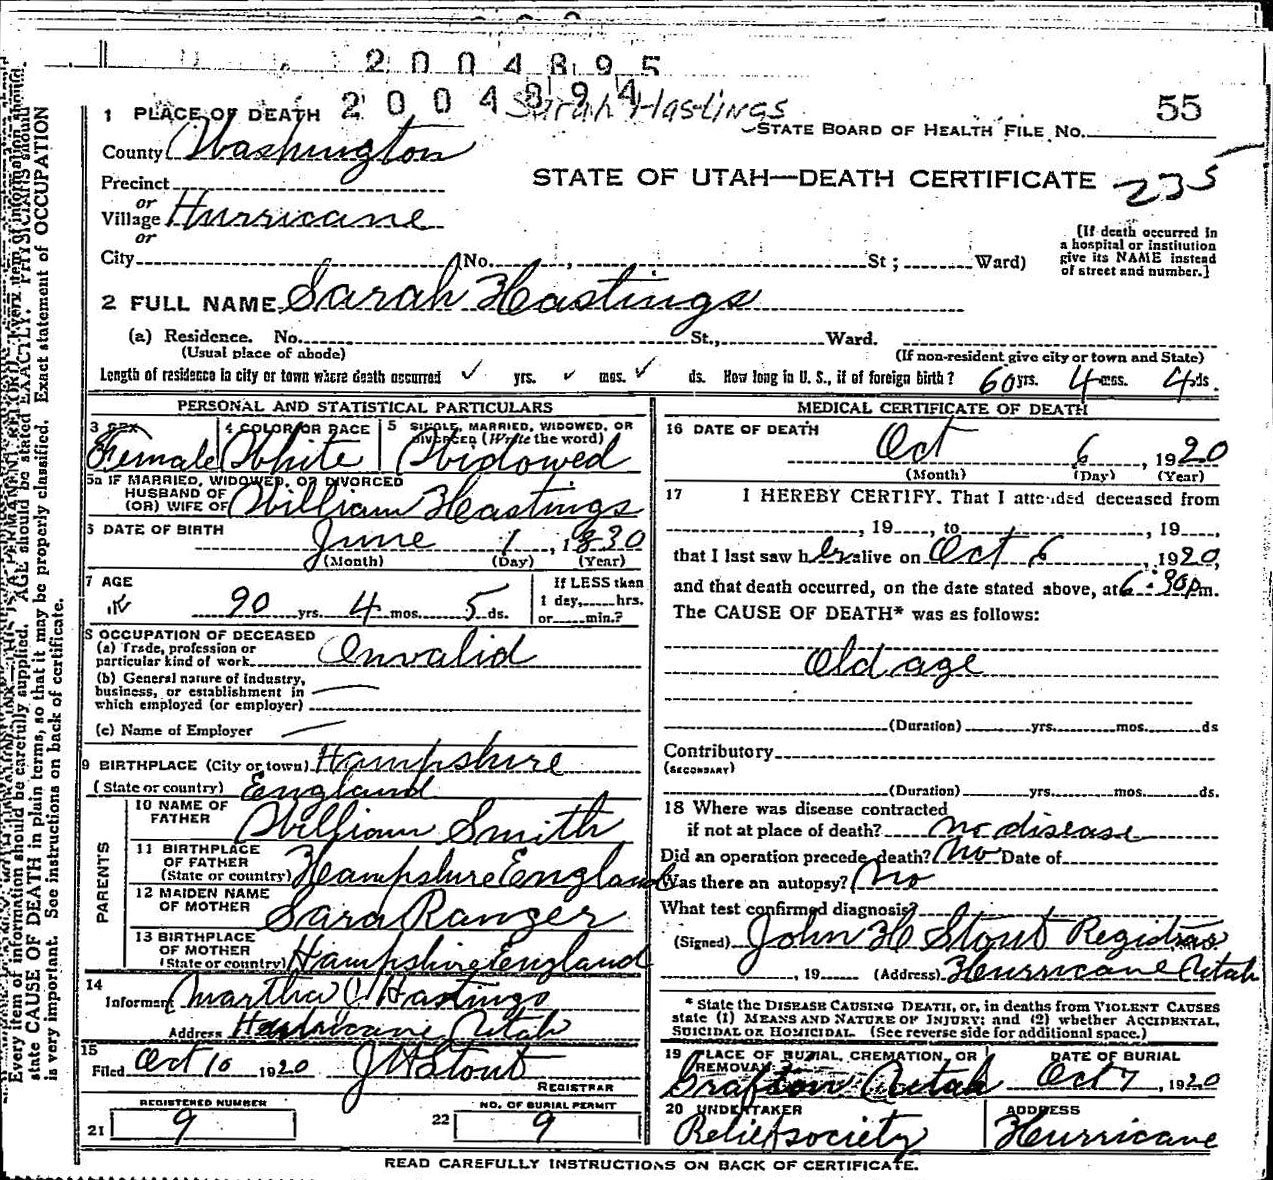 2004895
2004894 Sarah Hastings
55
1 PLACE OF DEATH
STATE BOARD OF HEALTH FILE NO.
County Washington
STATE OF UTAH—DEATH CERTIFICATE 235
Precinct
or
Village Hurricane
or
City No. , St; Ward)
[If death occurred in
a hospital or institution
give its NAME instead
of street and number.]
2 FULL NAME Sarah Hastings
(a) Residence. No. St., Ward.
(Usual place of abode) (If non-resident give city or town and State)
Length of residence in city or town where death occurred ✓ yrs. ✓ mos. ✓ ds. How long in U. S., if of foreign birth? 60 yrs. 4 mos. 4 ds.
PERSONAL AND STATISTICAL PARTICULARS
3 SEX Female
4 COLOR OR RACE White
5 SINGLE, MARRIED, WIDOWED, OR
DIVORCED (Write the word)
Widowed
5a IF MARRIED, WIDOWED, OR DIVORCED
HUSBAND OF
(OR) WIFE OF William Hastings
6 DATE OF BIRTH
June 1, 1830
(Month) (Day) (Year)
7 AGE
90 yrs. 4 mos. 5 ds.
If LESS than
1 day, hrs.
or min.?
8 OCCUPATION OF DECEASED
(a) Trade, profession or
particular kind of work Invalid
(b) General nature of industry,
business, or establishment in
which employed (or employer) —
(c) Name of Employer —
9 BIRTHPLACE (City or town) Hampshire
(State or country) England
PARENTS
10 NAME OF
FATHER William Smith
11 BIRTHPLACE
OF FATHER
(State or country) Hampshire England
12 MAIDEN NAME
OF MOTHER Sara Ranger
13 BIRTHPLACE
OF MOTHER
(State or country) Hampshire England
14
Informant Martha J Hastings
Address Hurricane Utah
15
Filed Oct 10 1920 J H Stout
REGISTRAR
REGISTERED NUMBER
21 9
NO. OF BURIAL PERMIT
22 9
MEDICAL CERTIFICATE OF DEATH
16 DATE OF DEATH
Oct 6, 1920
(Month) (Day) (Year)
17 I HEREBY CERTIFY. That I attended deceased from
, 19 , to , 19 ,
that I last saw her alive on Oct 6, 1920,
and that death occurred, on the date stated above, at 6:30 p m.
The CAUSE OF DEATH* was as follows:
Old age
(Duration) yrs. mos. ds
Contributory
(SECONDARY)
(Duration) yrs. mos. ds.
18 Where was disease contracted
if not at place of death? no disease
Did an operation precede death? No Date of
Was there an autopsy? No
What test confirmed diagnosis?
(Signed) John H Stout Registrar
, 19 (Address) Hurricane Utah
* State the DISEASE CAUSING DEATH, or, in deaths from VIOLENT CAUSES
state (1) MEANS AND NATURE OF INJURY; and (2) whether ACCIDENTAL,
SUICIDAL OR HOMICIDAL. (See reverse side for additional space.)
19 PLACE OF BURIAL, CREMATION, OR
REMOVAL
Grafton Utah
DATE OF BURIAL
Oct 7, 1920
20 UNDERTAKER
Relief society
ADDRESS
Hurricane
READ CAREFULLY INSTRUCTIONS ON BACK OF CERTIFICATE.
Every item of information should be carefully supplied. AGE should be stated EXACTLY. PHYSICIANS should
state CAUSE OF DEATH in plain terms, so that it may be properly classified. Exact statement of OCCUPATION
is very important. See instructions on back of certificate.